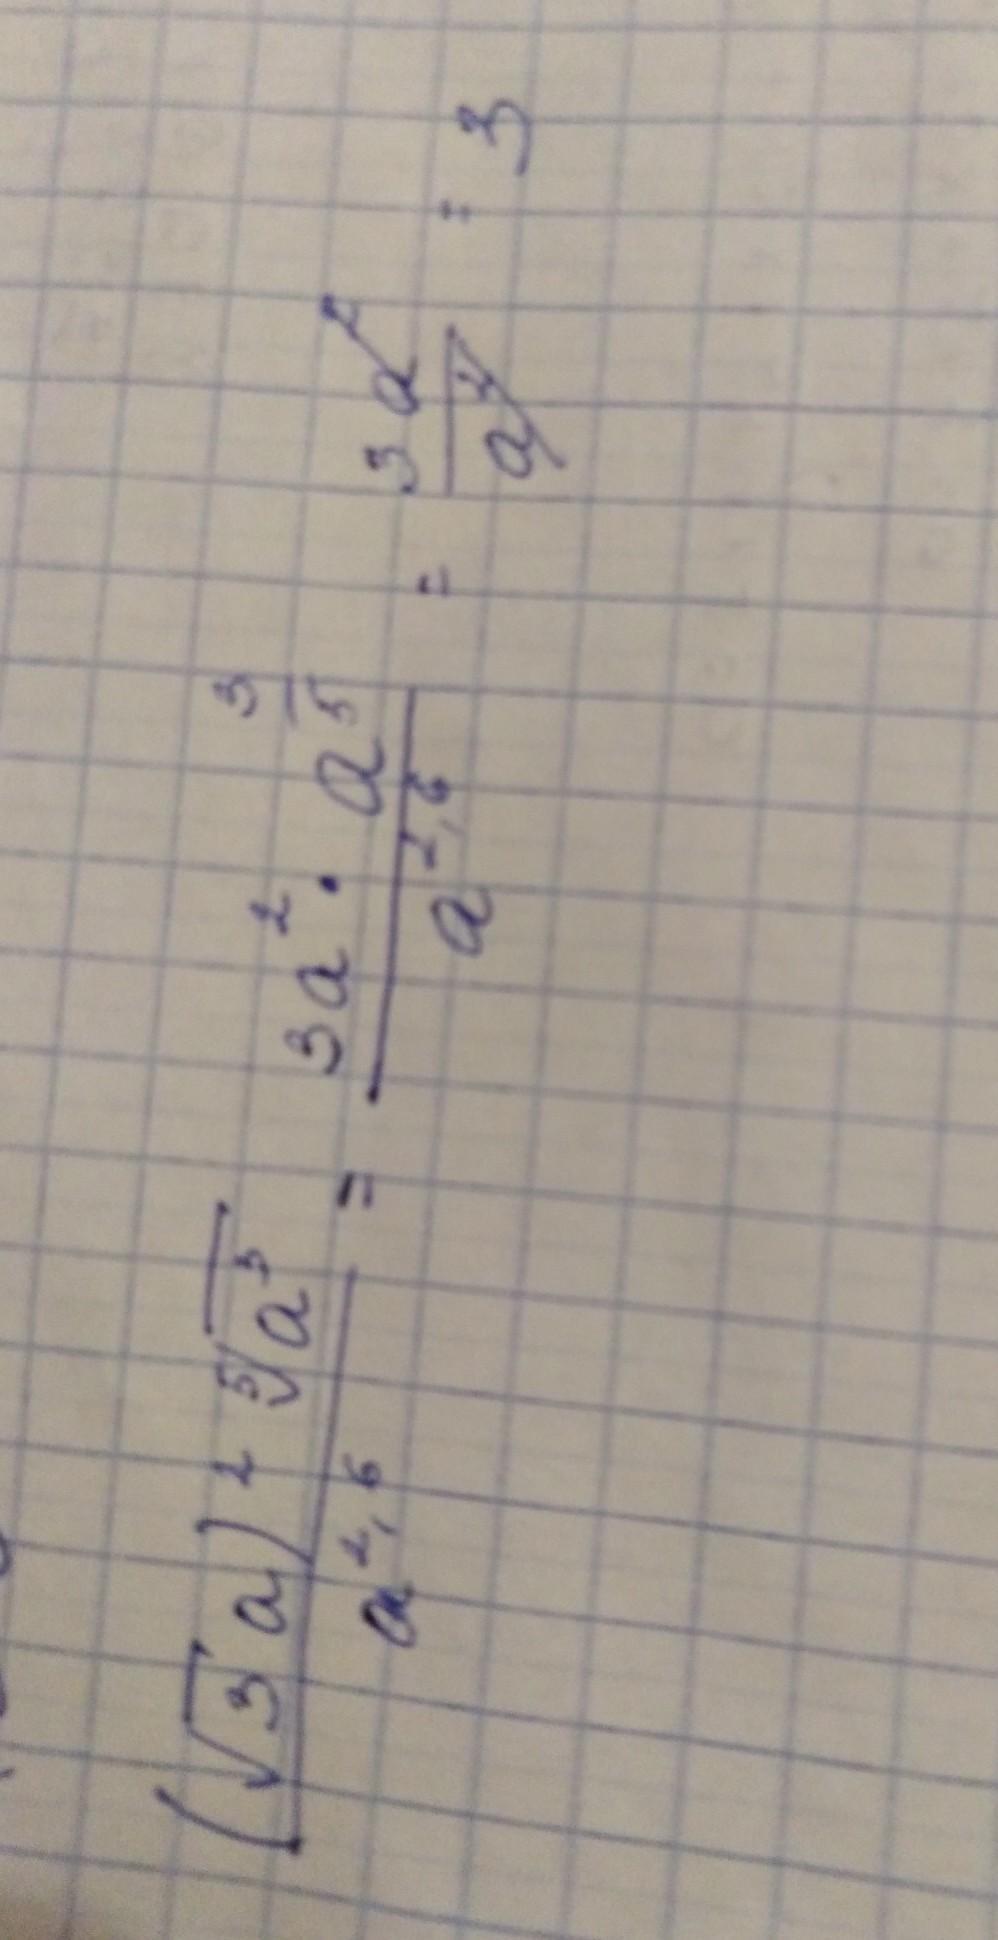 (√3 a)² ⁵√a³ / a²,⁶ = 3a² · a^(3/5) / a²,⁶ = 3a² / a² = 3